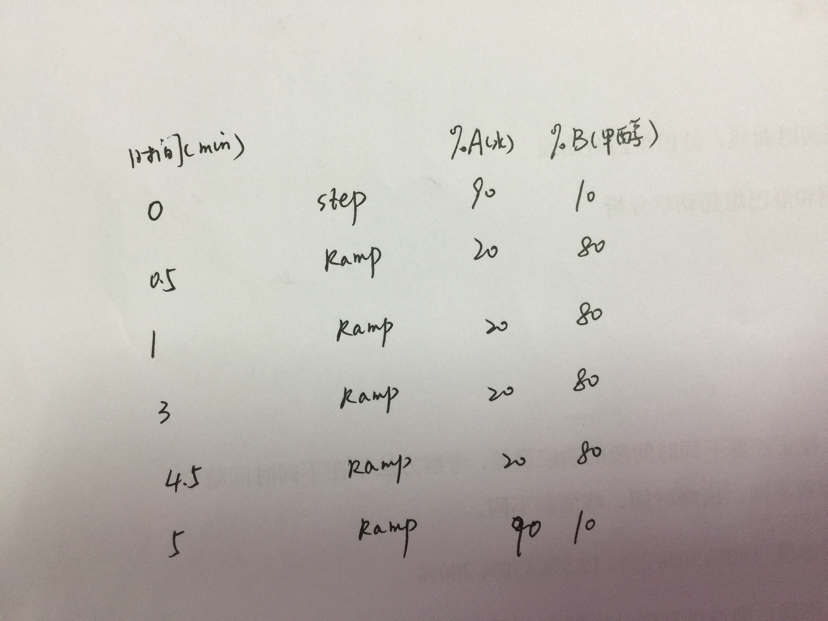 时间(min) %A(水) %B(甲醇)
0 step 90 10
0.5 Ramp 20 80
1 Ramp 20 80
3 Ramp 20 80
4.5 Ramp 20 80
5 Ramp 90 10